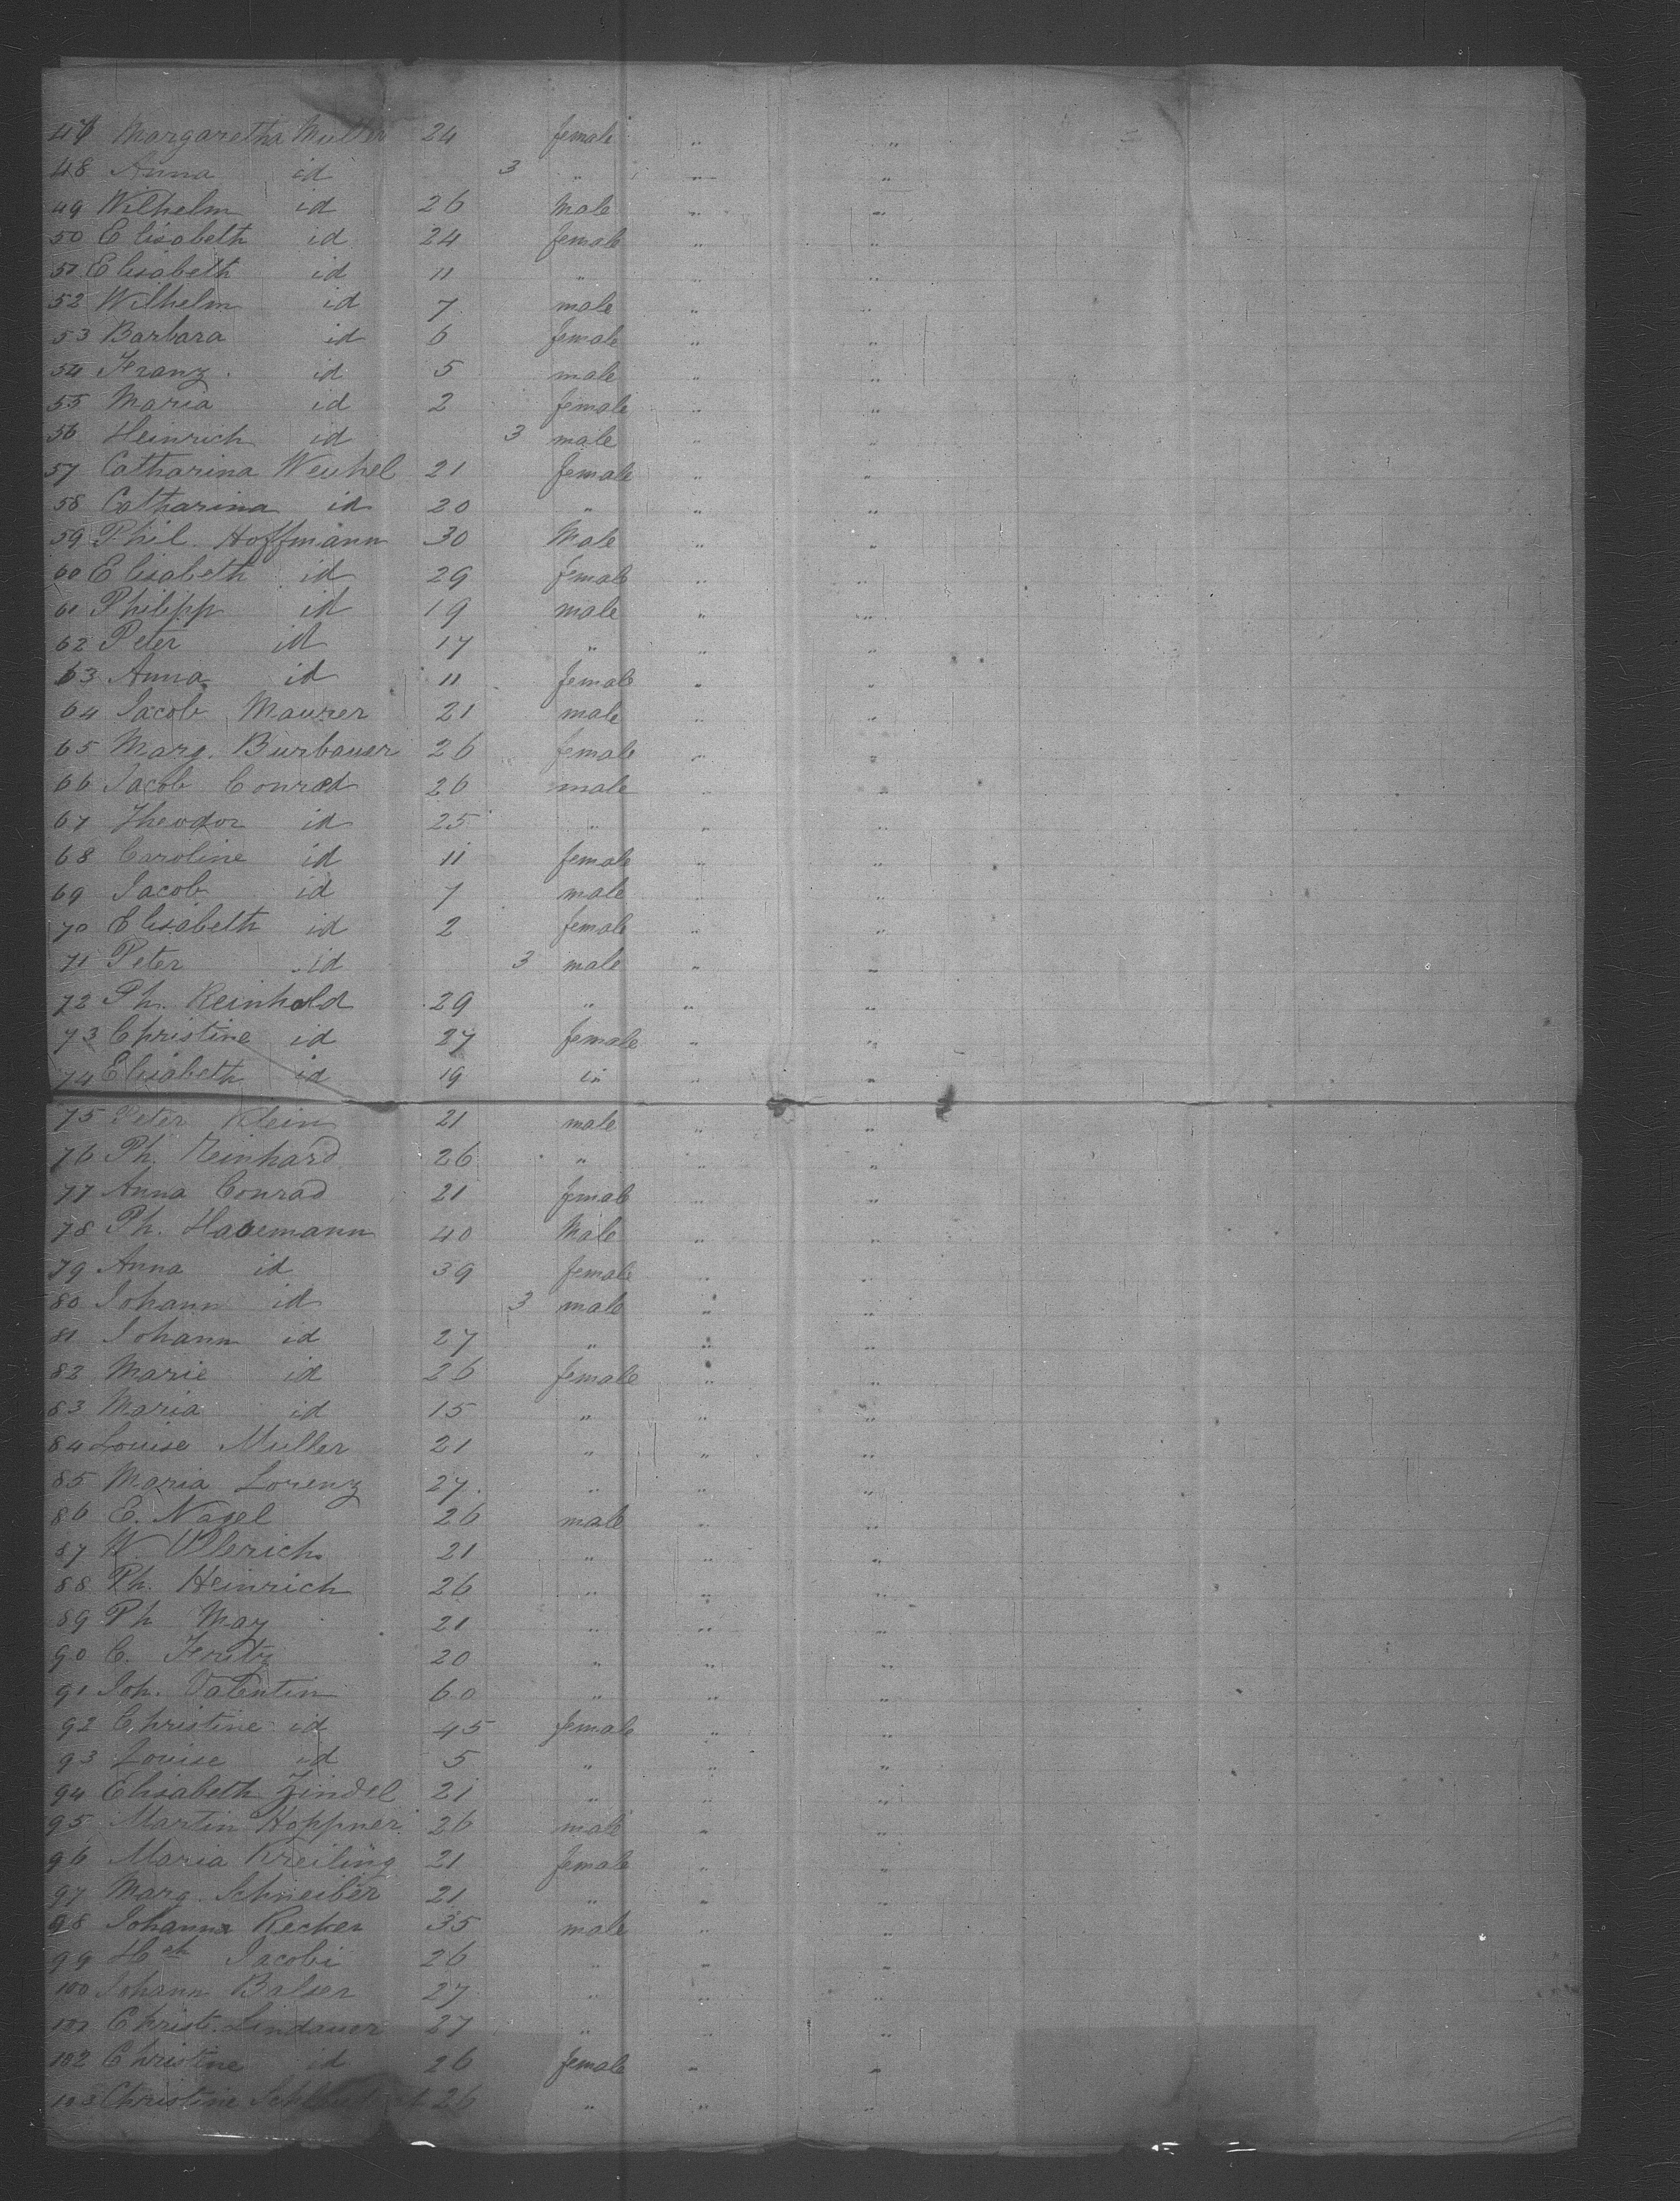 47 Margaretha Muller 24 female " "
48 Anna id 3 " " "
49 Wilhelm id 26 Male " "
50 Elisabeth id 24 female " "
51 Elisabeth id 11 " " "
52 Wilhelm id 7 male " "
53 Barbara id 6 female " "
54 Franz id 5 male " "
55 Maria id 2 female " "
56 Heinrich id 3 male " "
57 Catharina 21 female " "
58 Catharina id 20 " " "
59 Phil. Hoffmann 30 Male " "
60 Elisabeth id 29 female " "
61 Philipp id 19 male " "
62 Peter id 17 " " "
63 Anna id 11 female " "
64 Jacob Maurer 21 male " "
65 Marg. Burbauer 26 female " "
66 Jacob Conrad 26 male " "
67 Theodor id 25 " " "
68 Caroline id 11 female " "
69 Jacob id 7 male " "
70 Elisabeth id 2 female " "
71 Peter id 3 male " "
72 Ph. Reinhold 29 " " "
73 Christine id 27 female " "
74 Elisabeth id 19 " " "
75 Peter Klein 21 male " "
76 Ph. Reinhard 26 " " "
77 Anna Conrad 21 female " "
78 Ph. Havemann 40 Male " "
79 Anna id 39 female " "
80 Johann id 3 male " "
81 Johann id 27 " " "
82 Marie id 26 female " "
83 Maria id 15 " " "
84 Louise Muller 21 " " "
85 Maria Lorenz 27 " " "
86 E. Nagel 26 male " "
87 W. Ullerich 21 " " "
88 Ph. Heinrich 26 " " "
89 Ph May 21 " " "
90 C. Fritz 20 " " "
91 Joh. Valentin 60 " " "
92 Christine id 45 female " "
93 Louise id 5 " " "
94 Elisabeth Zindel 21 " " "
95 Martin Hoppner 26 male " "
96 Maria Kreiling 21 female " "
97 Marg. Schneiber 21 " " "
98 Johann Recker 35 male " "
99 Hch Jacobi 26 " " "
100 Johann Balser 27 " " "
101 Christ. Lindauer 27 " " "
102 Christine id 26 female " "
103 Christine 26 " " "